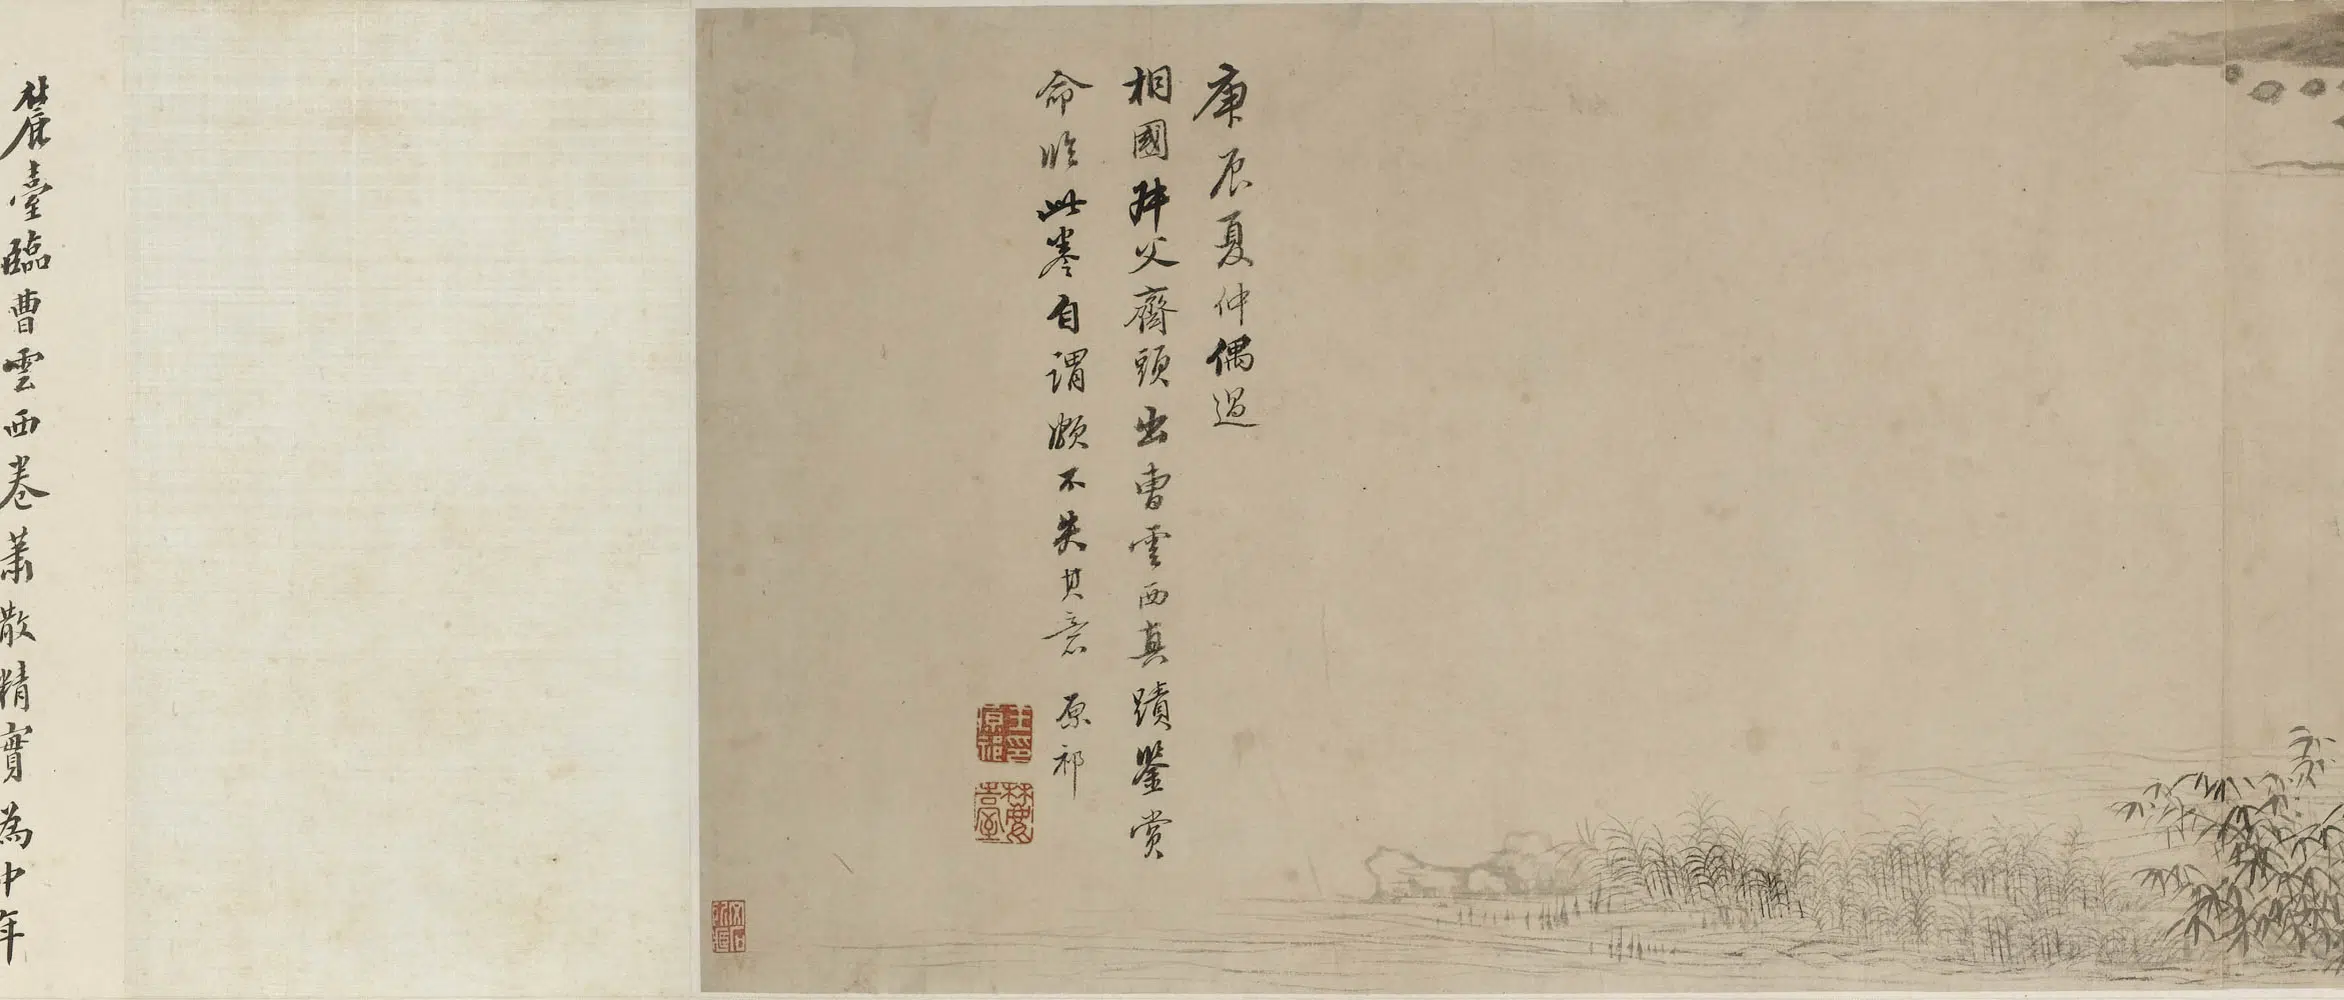 庚辰夏仲偶過
相國叔父齋頭出曹雲西真蹟鑒賞
命臨此卷自謂頗不失其意 原祁
王原祁印
麓臺
麓臺臨曹雲西卷蕭散精實為中年